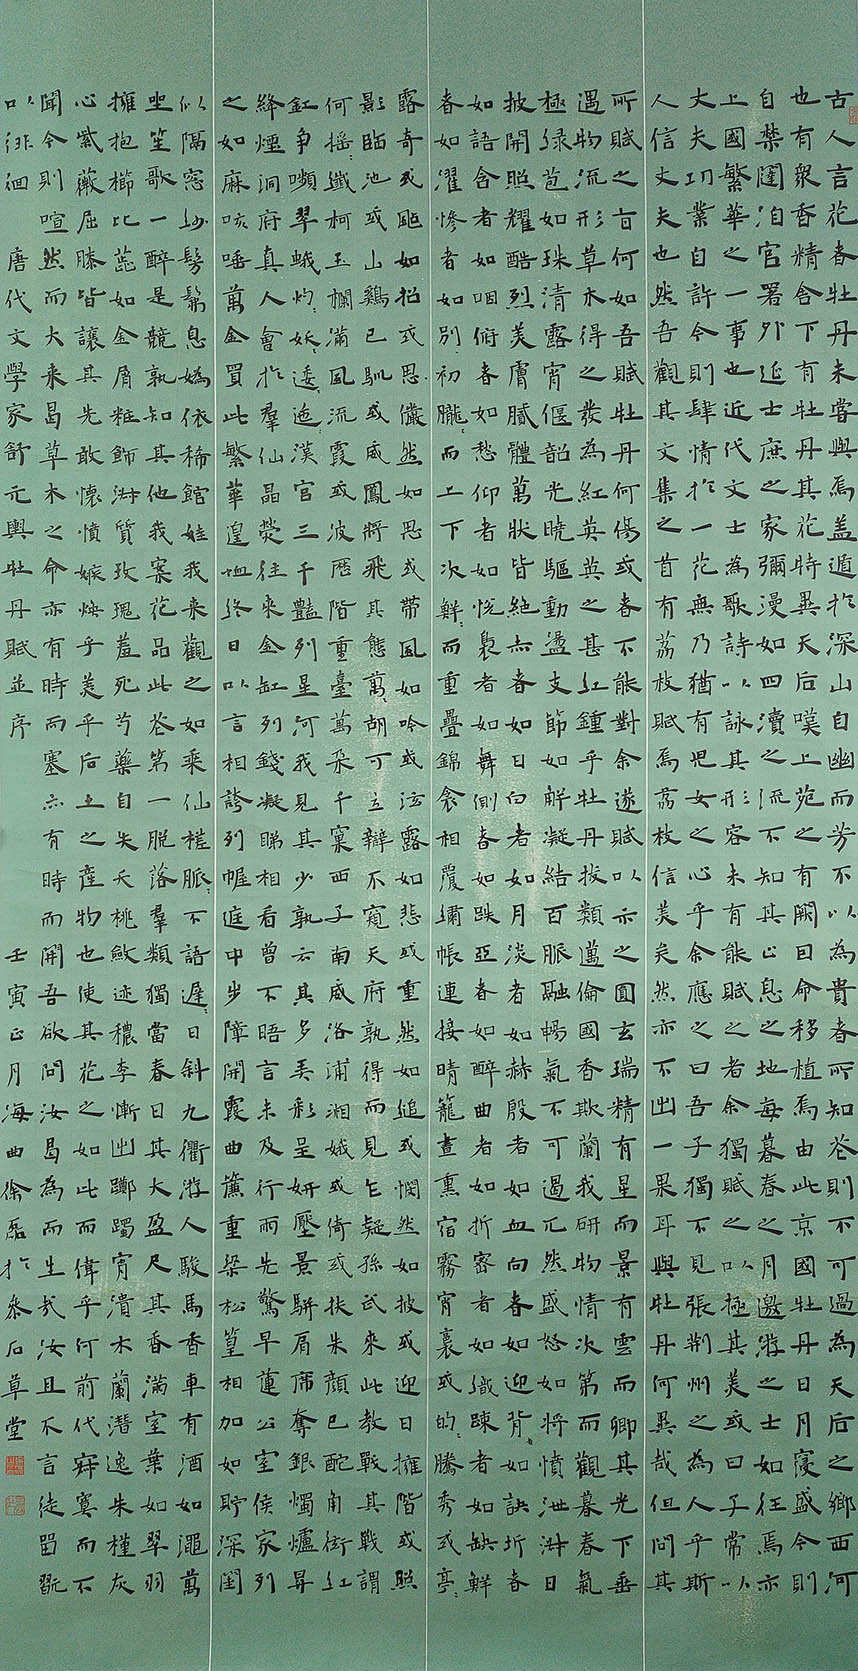 古人言花者牡丹未嘗與焉盖遁於深山自幽而芳不以為貴者所知花則不可過為天后之鄉西河
也有衆香精舍下有牡丹其花特異天后嘆上苑之有闕因命移植焉由此京國牡丹日月寖盛今則
自禁闥洎官署外延士庶之家彌漫如四瀆之流不知其止息之地每暮春之月遨游之士如狂焉亦
上國繁華之一事也近代文士為歌詩以詠其形容未有能賦之者余獨賦之以極其美或曰子常以
大夫功業自許今則肆情於一花無乃猶有兒女之心乎余應之曰吾子獨不見張荆州之為人乎斯
人信丈夫也然吾觀其文集之首有荔枝賦焉荔枝信美矣然亦不出一果耳與牡丹何異哉但問其
所賦之旨何如吾賦牡丹何傷或者不能對余遂賦以示之圓玄瑞精有星而景有雲而卿其光下垂
遇物流形草木得之發為紅英英之甚紅鍾乎牡丹拔類邁倫國香欺蘭我研物情次第而觀暮春氣
極绿苞如珠清露宵偃韶光曉驅動盪支節如解凝結百脈融暢氣不可遏兀然盛怒如將憤泄淋日
披開照耀酷烈美膚膩體萬狀皆絕赤者如日白者如月淡者如赫殷者如血向者如迎背如訣坼者
如語含者如咽俯者如愁仰者如悅裊者如舞側者如跌亞者如醉曲者如折密者如織疎者如缺鮮
者如濯慘者如別初朧〻而上下次鮮〻而重疊錦衾相覆繡帳連接晴籠晝熏宿霧宵裛或的〻騰秀或亭〻
露奇或颭如招或思儼然如思或帶風如吟或泫露如悲或重然如縋或憫然如披或迎日擁階或照
影臨池或山鷄已馴或威鳳將飛其態萬〻胡可立辯不窺天府孰得而見乍疑孫武來此教戰其戰謂
何搖〻纖柯玉欄滿風流霞或波歷階重臺萬朵千窠西子南威洛浦湘娥或倚或扶朱顔已酡角衒紅
釭争嚬翠蛾灼〻妖〻逶〻迤〻漢宮三千豔列星河我見其少孰云其多弄彩呈妍壓景駢肩席奪銀燭爐昇
絳煙洞府真人會於羣仙晶熒往來金缸列錢凝睇相看曾不晤言未及行雨先驚旱蓮公室侯家列
之如麻咳唾萬金買此繁華遑恤終日以言相誇列幄庭中步障開霞曲廡重梁松篁相加如貯深閨
似隔窓紗髣髴息嬀依稀館娃我來觀之如乘仙槎脈〻不語遲〻日斜九衢游人駿馬香車有酒如澠萬
坐笙歌一醉是競孰知其他我案花品此花第一脫落羣類獨當春日其大盈尺其香滿室葉如翠羽
擁抱櫛比蕊如金屑粧飾淋質玫瑰羞死芍藥自失夭桃斂迹穠李慚出躑躅宵潰木蘭潛逸朱槿灰
心紫薇屈膝皆讓其先敢懷憤嫉煥乎美乎后土之産物也使其花之如此而偉乎何前代寂寞而不
聞今則喧然而大來曷草木之命亦有時而塞亦有時而開吾欲問汝曷為而生哉汝且不言徒留翫
以徘徊 唐代文學家舒元輿牡丹賦並序 壬寅正月海曲徐磊於参石草堂